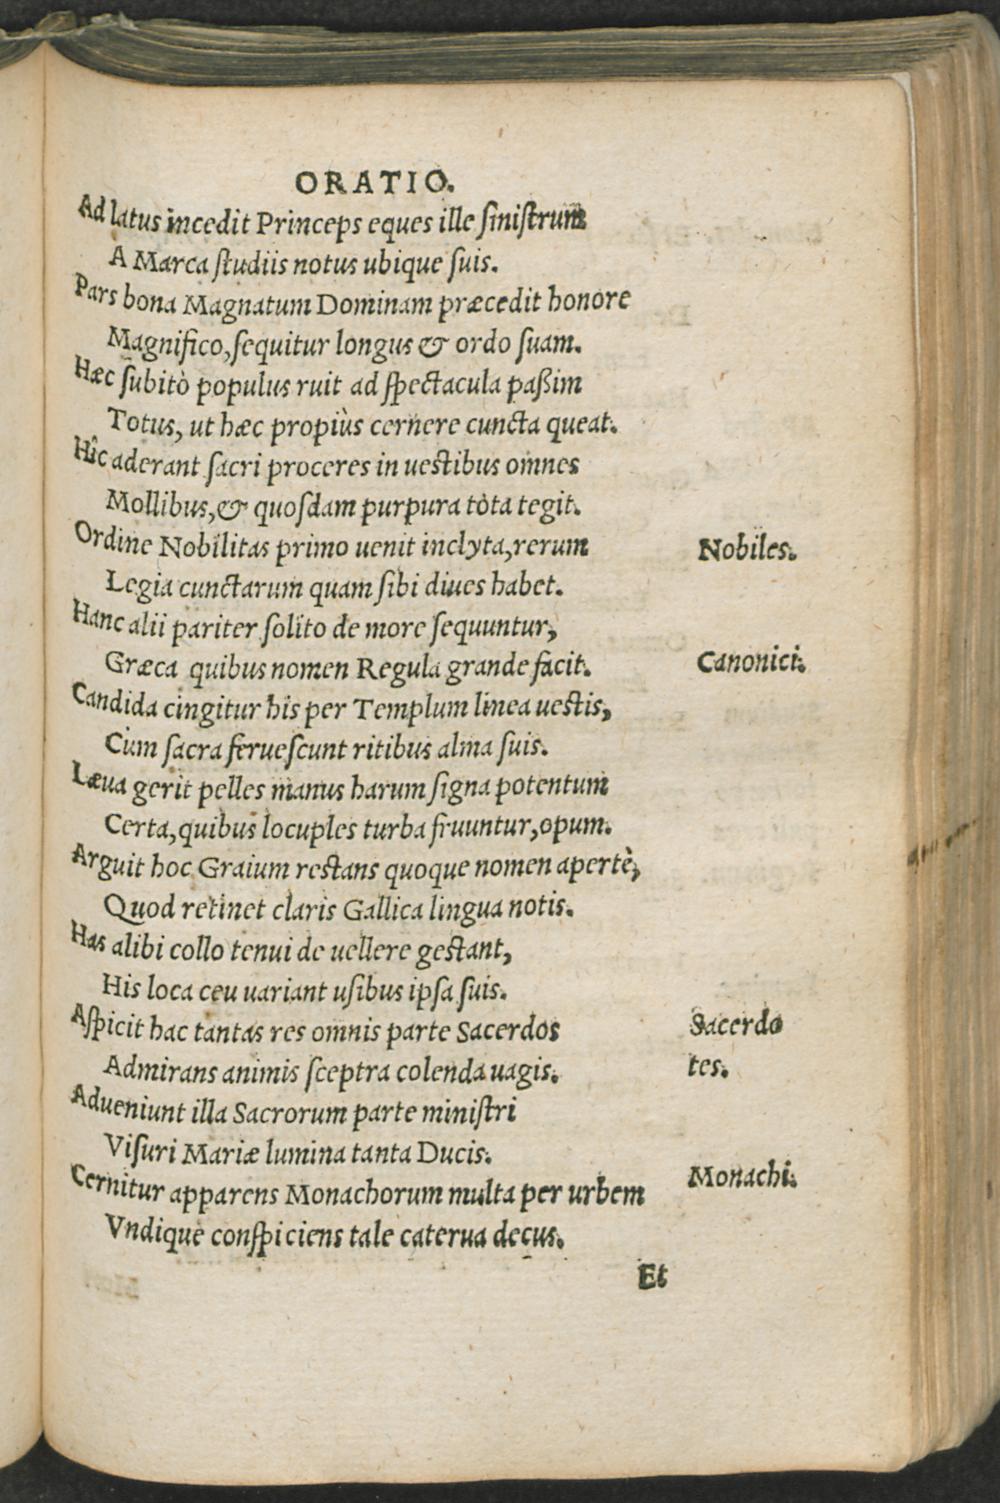 ORATIO.
Ad latus incedit Princeps eques ille ſiniſtrum
A Marca ſtudiis notus ubique ſuis.
Pars bona Magnatum Dominam præcedit honore
Magnifico, ſequitur longus & ordo ſuam.
Hæc ſubitò populus ruit ad ſpectacula paßim
Totus, ut hæc propiùs cernere cuncta queat.
Hîc aderant ſacri proceres in ueſtibus omnes
Mollibus, & quoſdam purpura tòta tegit.
Ordine Nobilitas primo uenit inclyta, rerum
Nobiles.
Legia cunctarum quam ſibi diues habet.
Hanc alii pariter ſolito de more ſequuntur,
Græca quibus nomen Regula grande facit.
Canonici.
Candida cingitur his per Templum linea ueſtis,
Cùm ſacra ferueſcunt ritibus alma ſuis.
Læua gerit pelles manus harum ſigna potentum
Certa, quibus locuples turba fruuntur, opum.
Arguit hoc Graium reſtans quoque nomen apertè,
Quod retinet claris Gallica lingua notis.
Has alibi collo tenui de uellere geſtant,
His loca ceu uariant uſibus ipſa ſuis.
Aſpicit hac tantas res omnis parte Sacerdos
Sacerdo
Admirans animis ſceptra colenda uagis.
tes.
Adueniunt illa Sacrorum parte miniſtri
Viſuri Mariæ lumina tanta Ducis.
Cernitur apparens Monachorum multa per urbem
Monachi.
Vndique conſpiciens tale caterua decus.
Et